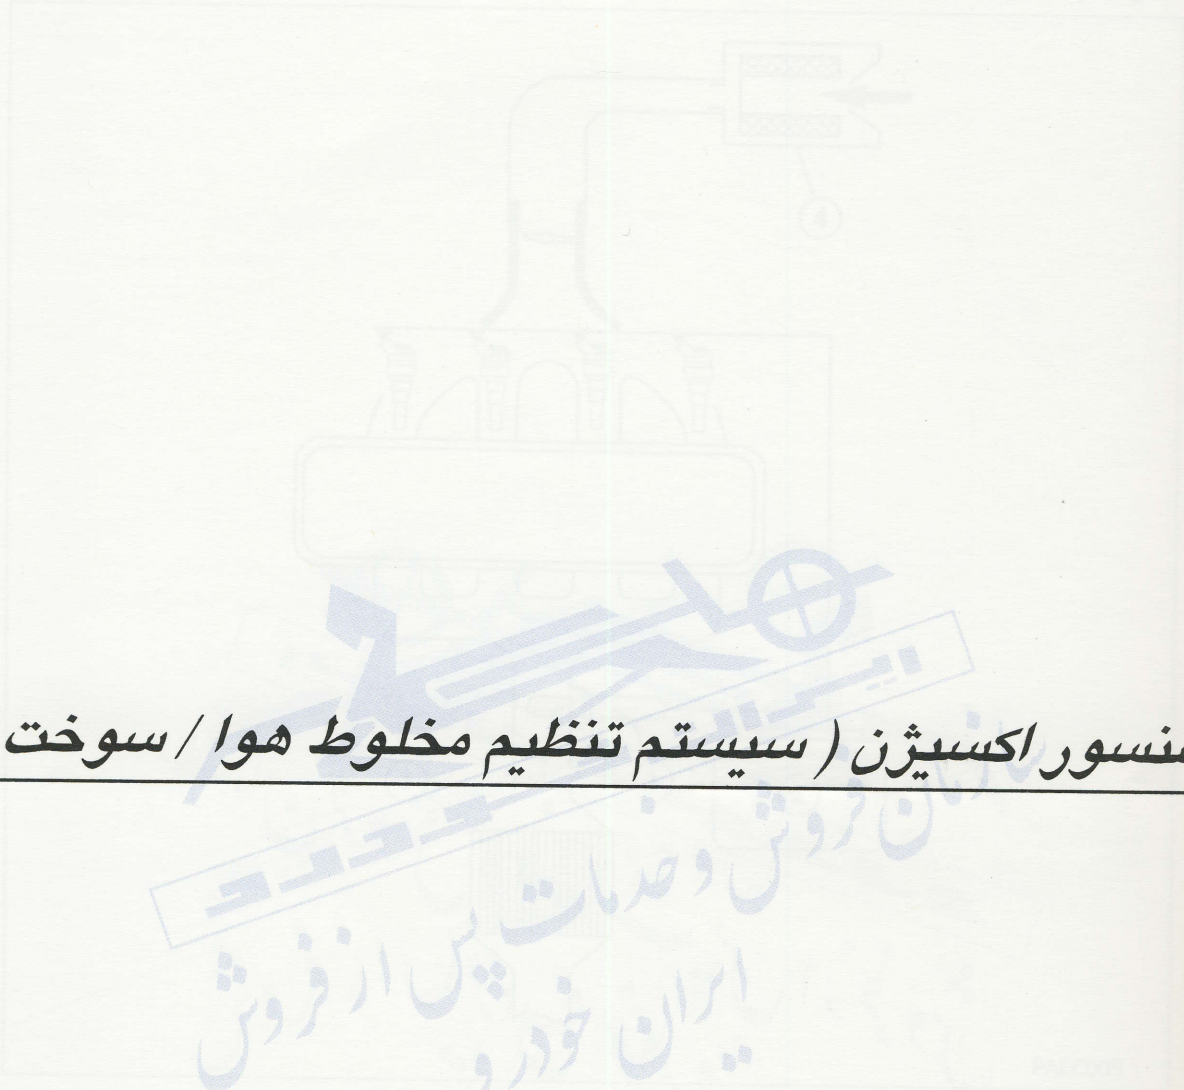 سنسور اکسیژن ( سیستم تنظیم مخلوط هوا / سوخت
ایران خودرو
سازمان فروش و خدمات پس از فروش
ایران خودرو